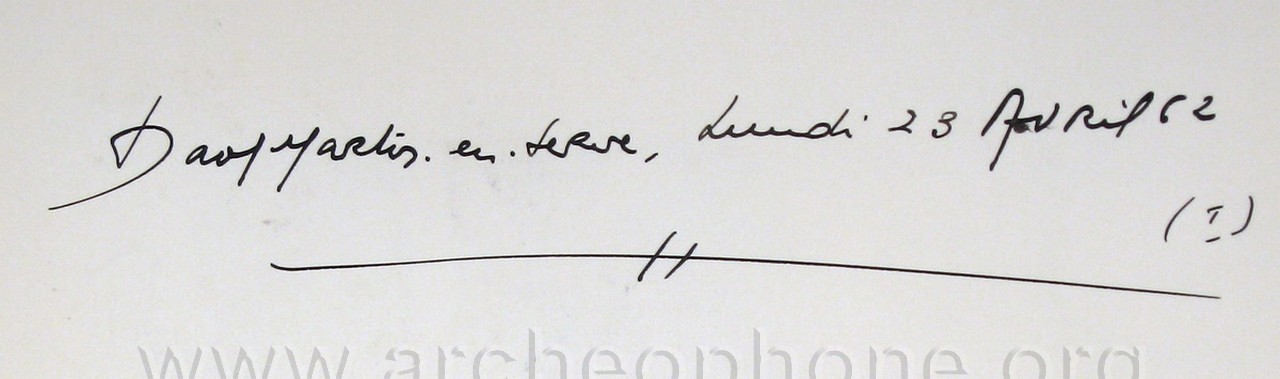 Dammartin.en.serve, Lundi 23 Avril 62
(I)
www.archeophone.org